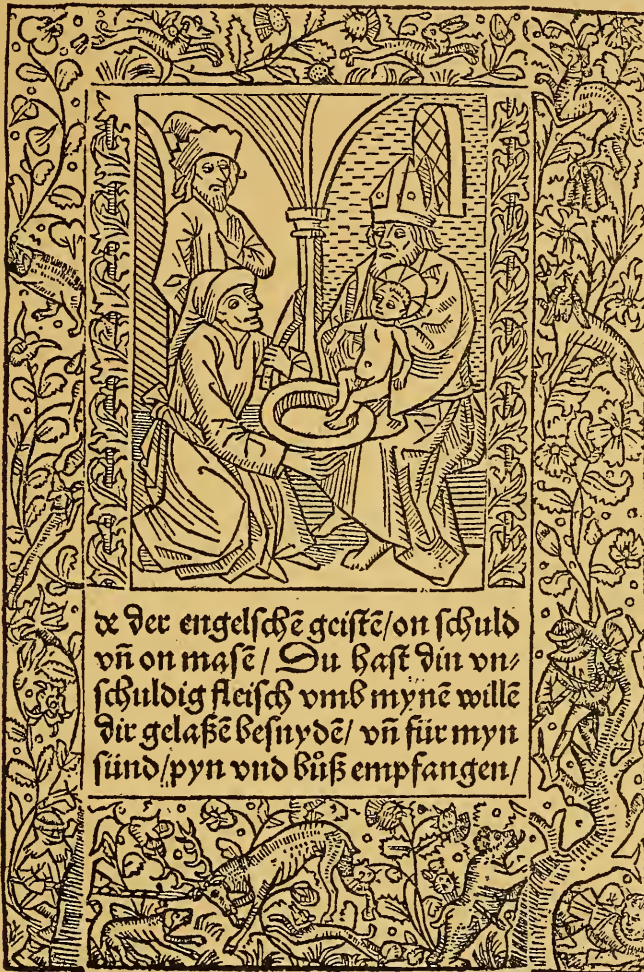 de der engelschē geistē/on schuld
vn̄ on masē / Du hast din vn⸗
schuldig fleisch vmb mynē willē
dir gelaßē besnydē/ vn̄ für myn
sünd/pyn vnd bůß empfangen/